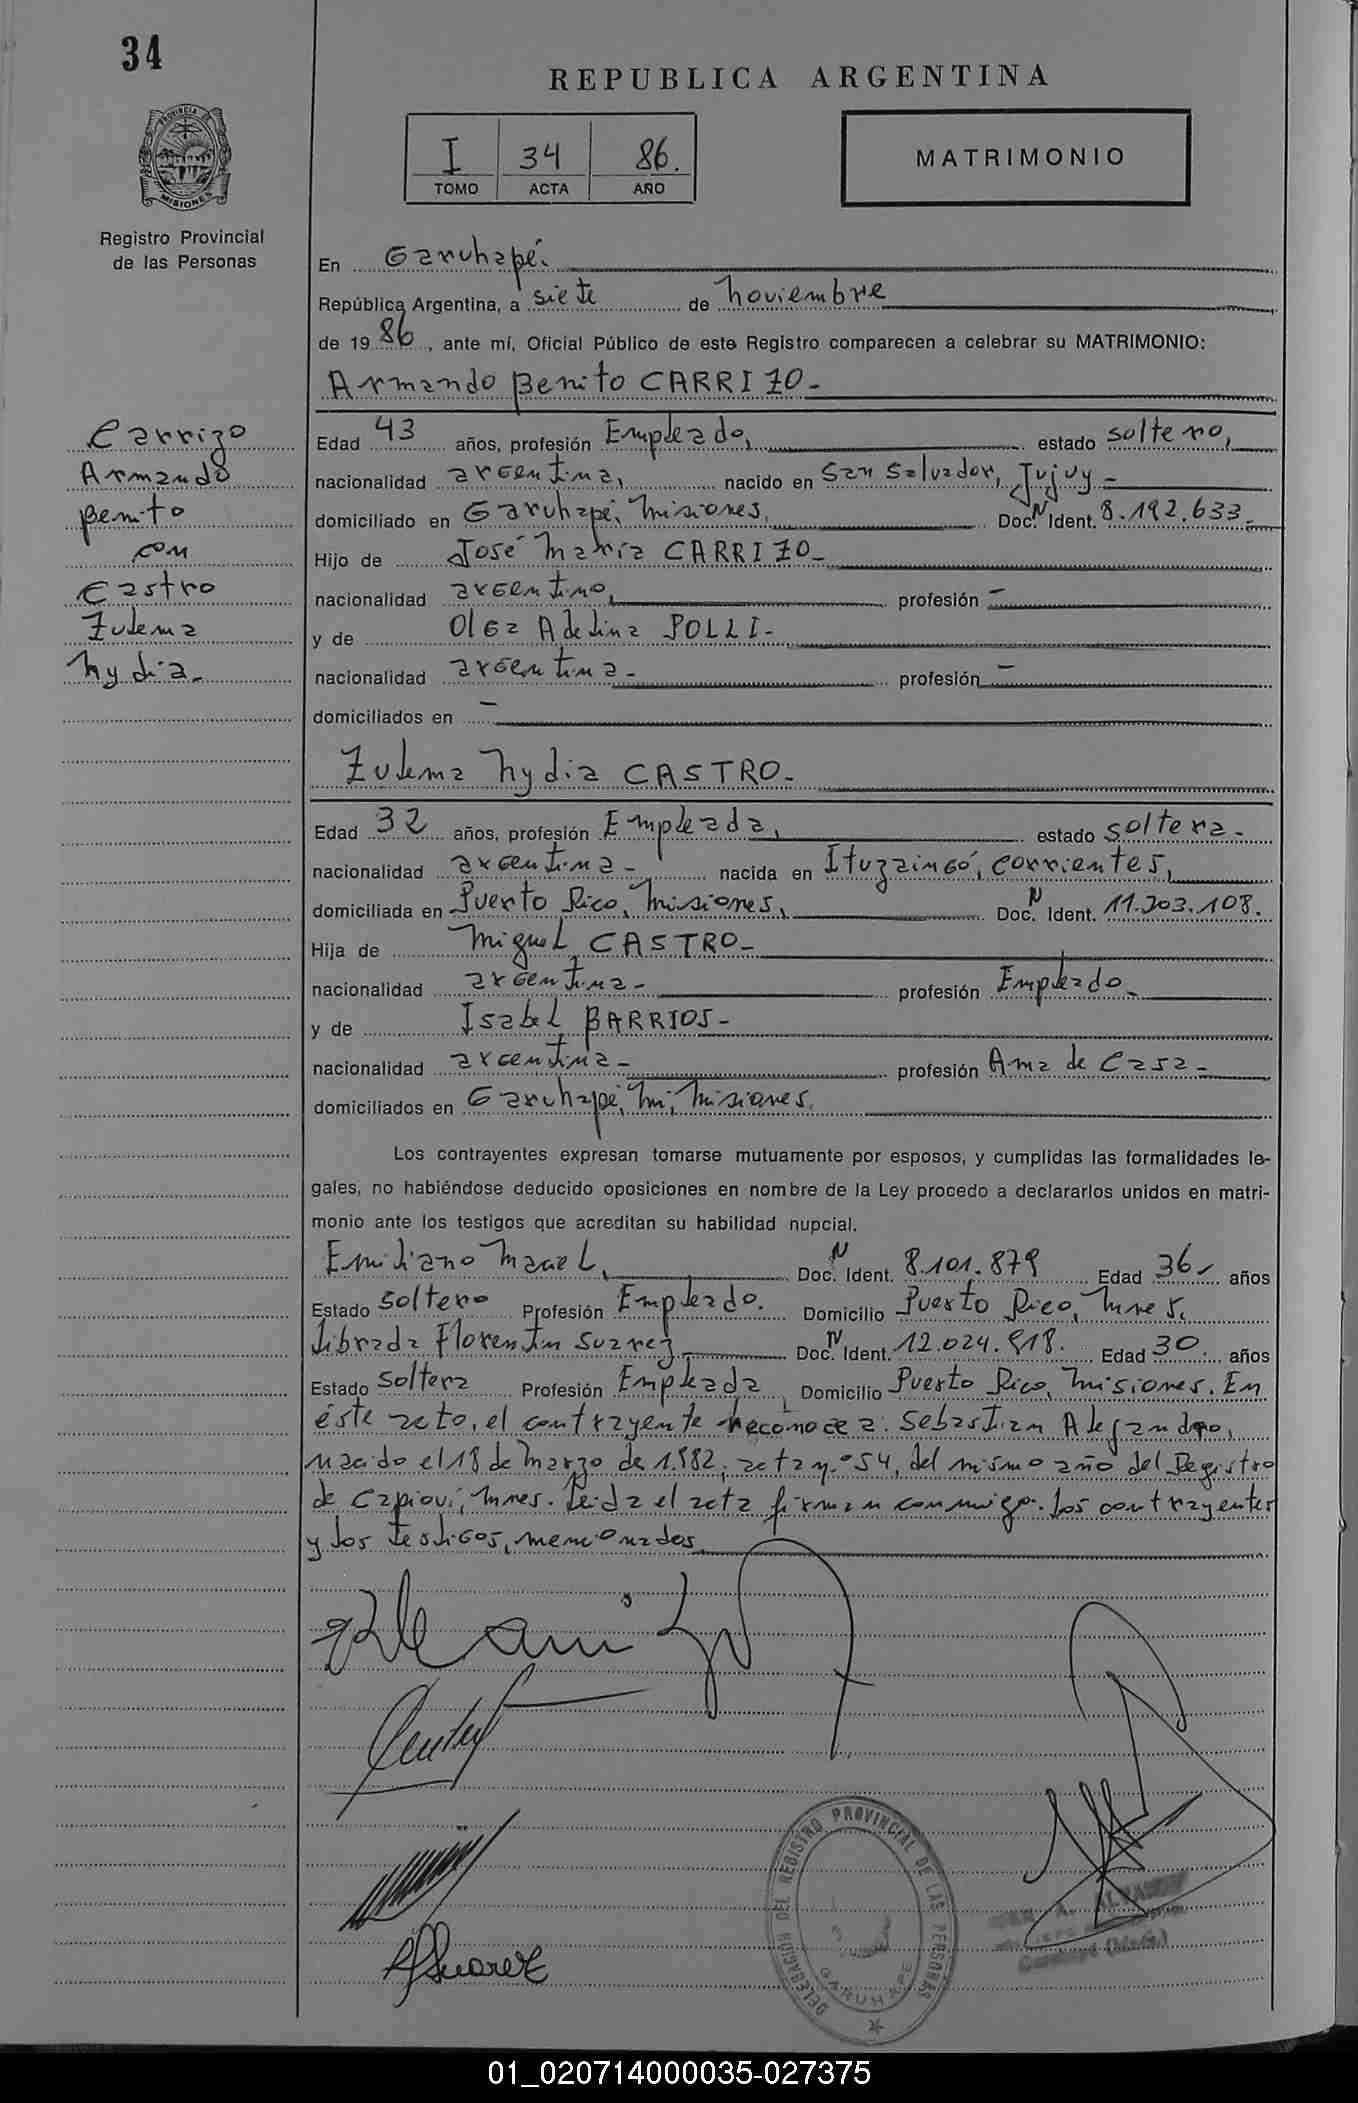 34
REPUBLICA ARGENTINA
I 34 86.
TOMO ACTA AÑO
MATRIMONIO
PROVINCIA DE
MISIONES
Registro Provincial
de las Personas
En Garuhapé.
República Argentina, a siete de noviembre
de 1986, ante mí, Oficial Público de este Registro comparecen a celebrar su MATRIMONIO:
Armando Benito CARRIZO-
Carrizo
Armando
Benito
con
Castro
Zulema
Nydia.
Edad 43 años, profesión Empleado, estado soltero,
nacionalidad argentina, nacido en San Salvador, Jujuy-
domiciliado en Garuhapé, Misiones, Doc. N Ident. 8.192.633-
Hijo de José María CARRIZO-
nacionalidad argentino, profesión -
y de Olga Adelina POLLI-
nacionalidad argentina- profesión -
domiciliados en -
Zulema Nydia CASTRO-
Edad 32 años, profesión Empleada, estado soltera-
nacionalidad argentina- nacida en Ituzaingó, Corrientes,
domiciliada en Puerto Rico, Misiones, Doc. N Ident. 11.303.108.
Hija de Miguel CASTRO-
nacionalidad argentina- profesión Empleado-
y de Isabel BARRIOS-
nacionalidad argentina- profesión Ama de Casa-
domiciliados en Garuhapé, Mí, Misiones.
Los contrayentes expresan tomarse mutuamente por esposos, y cumplidas las formalidades le-
gales, no habiéndose deducido oposiciones en nombre de la Ley procedo a declararlos unidos en matri-
monio ante los testigos que acreditan su habilidad nupcial.
Emiliano Maciel, Doc. N Ident. 8.101.879 Edad 36 años
Estado soltero Profesión Empleado. Domicilio Puerto Rico, Mnes.
Librada Florentin Suarez Doc. N Ident. 12.024.918. Edad 30 años
Estado soltera Profesión Empleada, Domicilio Puerto Rico, Misiones. En
éste acto, el contrayente reconoce a: Sebastian Alejandro,
nacido el 18 de Marzo de 1.982, acta n.º 54, del mismo año del Registro
de Capiovi, Mnes. Leida el acta firman conmigo los contrayentes
y los testigos, mencionados
Suarez
DELEGACION DEL REGISTRO PROVINCIAL DE LAS PERSONAS
GARUHAPE
01_020714000035-027375